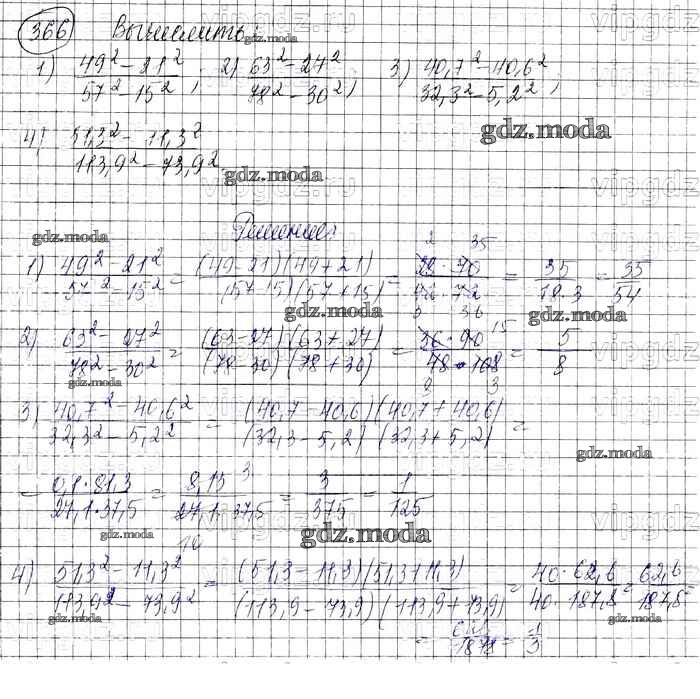 366 Вычислить:
1) (49² - 21²)/(57² - 15²); 2) (63² - 27²)/(78² - 30²); 3) (40,7² - 40,6²)/(32,3² - 5,2²);
4) (51,3² - 11,3²)/(113,9² - 73,9²)
Решение:
1) (49² - 21²)/(57² - 15²) = (49-21)(49+21)/(57-15)(57+15) = (28·70)/(42·72) = 35/(18·3) = 35/54
2) (63² - 27²)/(78² - 30²) = (63-27)(63+27)/(78-30)(78+30) = (36·90)/(48·108) = 5/8
3) (40,7² - 40,6²)/(32,3² - 5,2²) = (40,7-40,6)(40,7+40,6)/(32,3-5,2)(32,3+5,2) =
= (0,1·81,3)/(27,1·37,5) = 8,13/(27,1·37,5) = 3/375 = 1/125
4) (51,3² - 11,3²)/(113,9² - 73,9²) = (51,3-11,3)(51,3+11,3)/(113,9-73,9)(113,9+73,9) = (40·62,6)/(40·187,8) = 62,6/187,8 =
= 626/1878 = 1/3
gdz.moda
vipgdz.ru